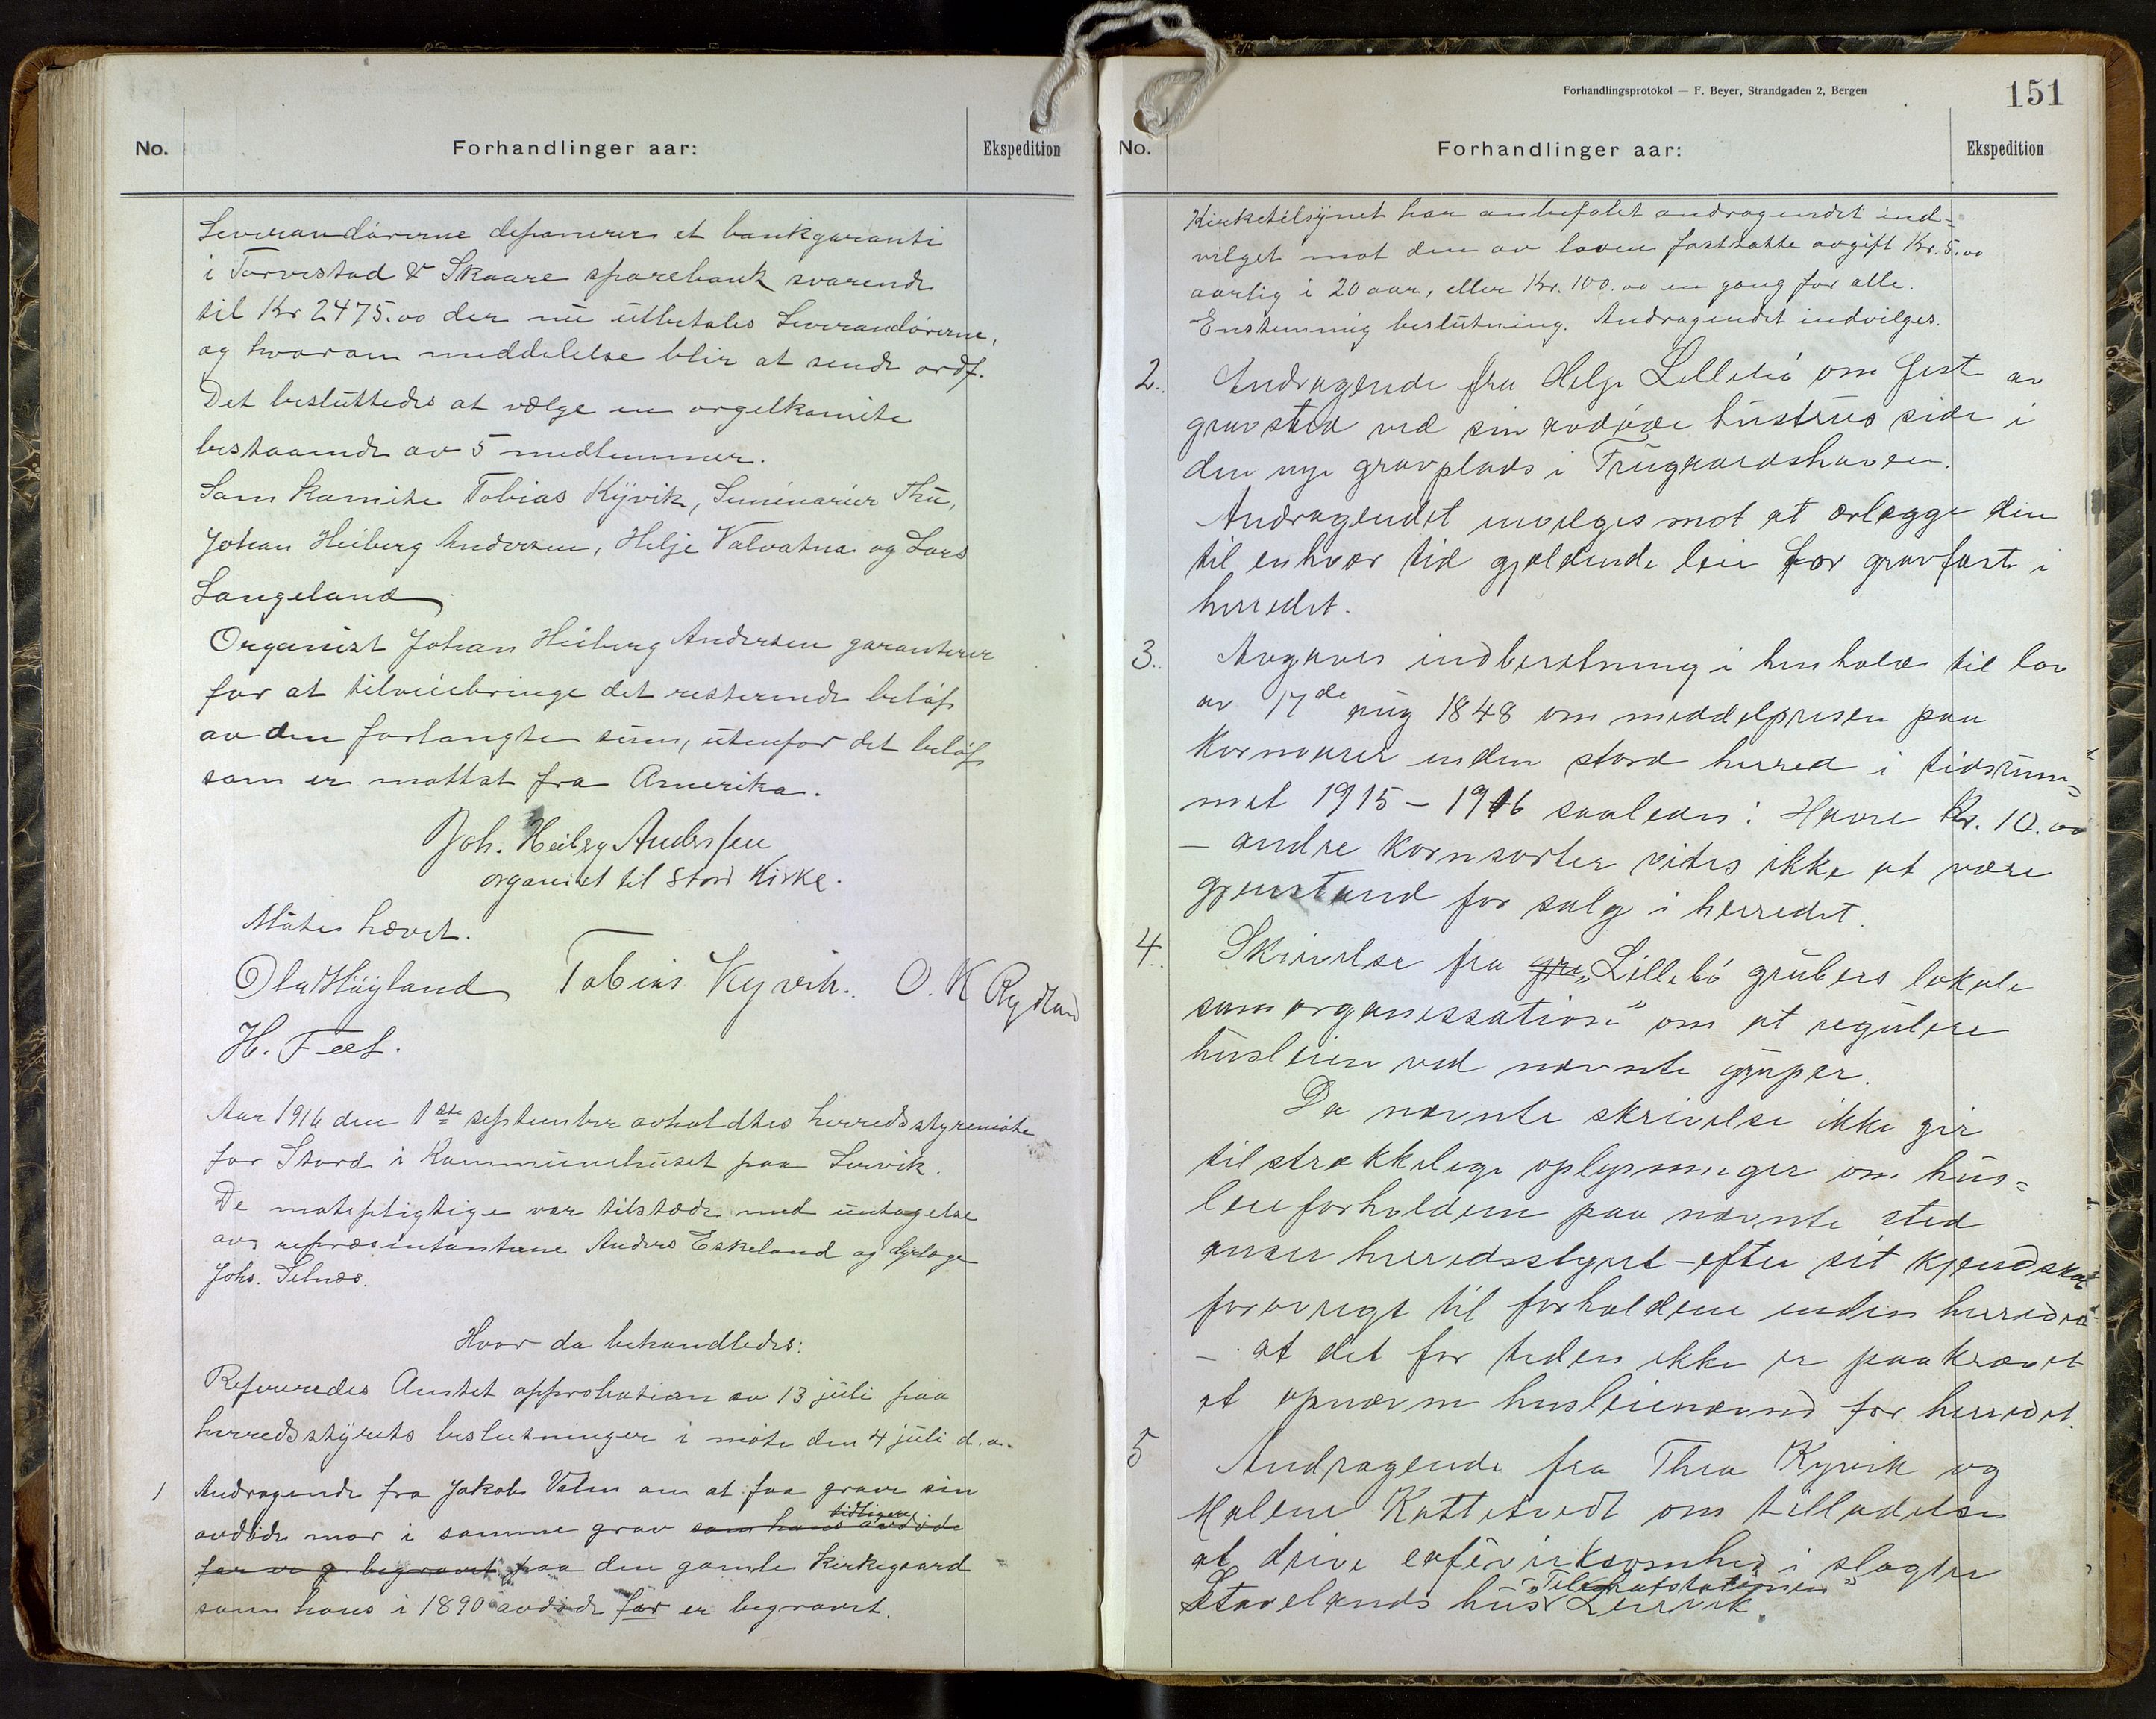 No. Forhandlinger aar: Ekspedition
Leverandørerne deponerer et bankgaranti
i Torvestad & Skaare sparebank svarende
til Kr 2475.00 der nu utbetales Leverandørerne,
og hvorom meddelelse blir at sende ordf.
Det besluttedes at vælge en orgelkomite
bestaaende av 5 medlemmer.
Som komite Tobias Kyvik, Seminarier Thu,
Johan Heiberg Andersen, Helje Valvatna og Lars
Langeland
Organist Johan Heiberg Andersen garanterer
for at tilveiebringe det resterende beløp
av den forlangte sum, utenfor det beløp
som er mottat fra Amerika.
Joh. Heiberg Andersen
organist til Stord Kirke.
Møtet hævet.
Ola Høyland Tobias Kyvik. O. K Rydland
H. Feet.
Aar 1916 den 1ste september avholdtes herredsstyremøte
for Stord i Kommunehuset paa Lervik.
De møtepligtige var tilstæde med undtagelse
av repræsentanterne Anders Eskeland og dyrlæge
Johs. Setnæs.
Hvor da behandledes:
Refereredes Amtet approbation av 13 juli paa
herredsstyrets beslutninger i møte den 4 juli d.a.
1 Andragende fra Jakob Vatna om at faa grave sin
tidligere
avdøde mor i samme grav som hans avdøde
far er begravet paa den gamle Kirkegaard
som hans i 1890 avdøde far er begravet.
Forhandlingsprotokol — F. Beyer, Strandgaden 2, Bergen
151
No. Forhandlinger aar: Ekspedition
Kirketilsynet har anbefalet andragendet ind-
vilget mot den av loven fastsatte avgift Kr. 5.00
aarlig i 20 aar, eller Kr. 100.00 en gang for alle.
Enstemmig beslutning. Andragendet indvilges.
2. Andragende fra Helje Lillebø om fest av
gravsted ved sin avdøde hustrus side i
den nye gravplads i Trugaardshaven.
Andragendet invilges mot at erlægge den
til enhver tid gjeldende leie for gravfest i
herredet.
3. Avgaves indberetning i henhold til lov
av 17de aug 1848 om middelprisen paa
Kornvarer inden stord herred i tidsrum-
met 1915 - 1916 saaledes: Havre Kr. 10.00
- andre kornsorter vides ikke at være
gjenstand for salg i herredet.
4. Skrivelse fra gru „Lillebø grubers lokale
samorganissation" om at regulere
husleien ved nævnte gruper.
Da nævnte skrivelse ikke gir
tilstrækkelige oplysninger om hus-
leieforholdene paa nævnte sted
anser herredsstyret - efter sit kjendskap
forøvrigt til forholdene inden herredet
- at det for tiden ikke er paakrævet
at opnævne husleienævnd for herredet.
5 Andragende fra Thea Kyvik og
Malene Kattetvedt om tilladelse
at drive cafévirksomhed i slagter
„Telegrafstationen"
Stavelands hus Leirvik.